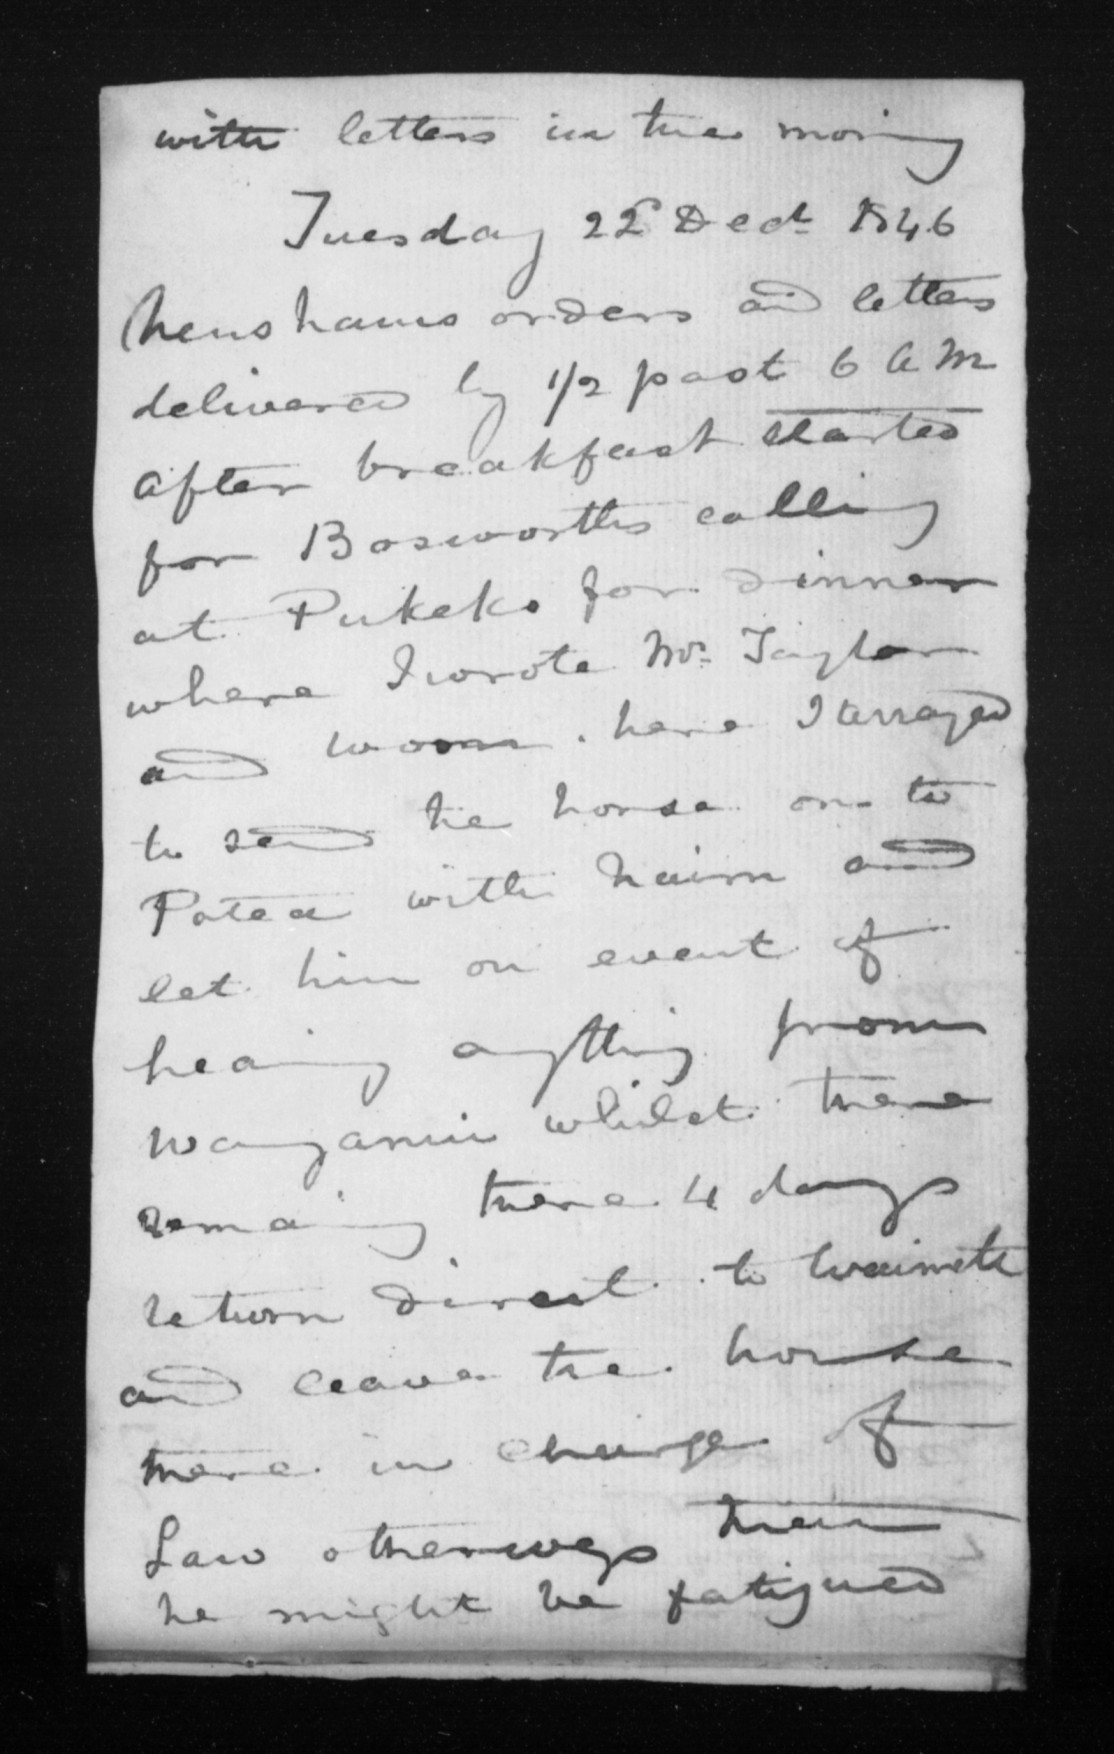 with letters in the morning
Tuesday 22d Decr 1846
Henshaws orders and letters
delivered by 1/2 past 6 A M
after breakfast started
for Bosworths calling
at Pukeko for dinner
where I wrote Mr Taylor
and here I arranged
to send the horse on to
Patea with and
let him on event of
hearing anything from
Wanganui whilst there
remaing there 4 days
return direct to Waimate
and leave the horse
there in charge of
Law otherways
he might be fatigued